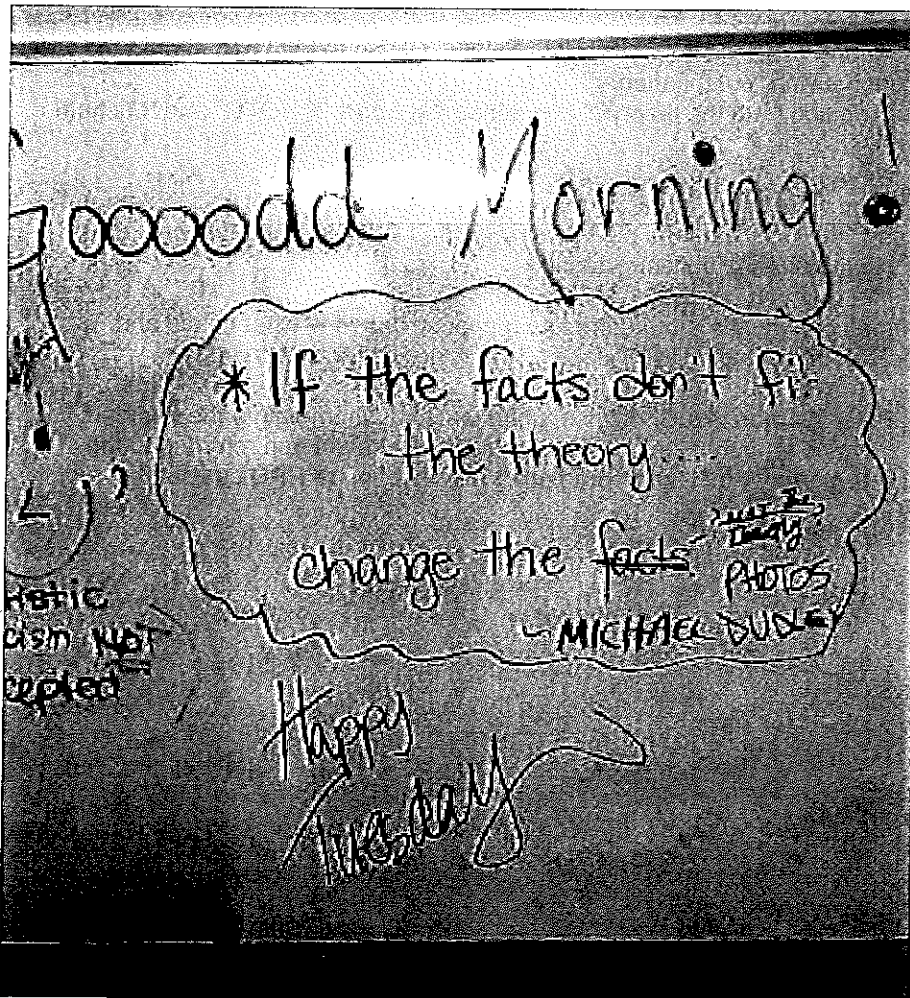 goooodd Morning!
* If the facts don't fit
the theory....
change the facts
PHOTOS
~ MICHAEL DUDLEY
istic
cism NOT
cepted
Happy
Tuesday